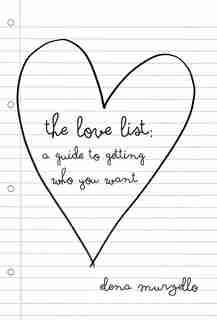 the love list:
a guide to getting
who you want
dena murzello